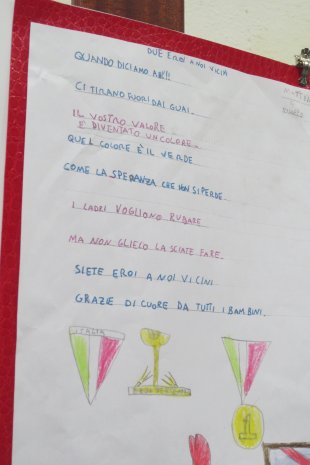 DUE EROI A NOI VICINI
QUANDO DICIAMO AHI!!
CI TIRANO FUORI DAI GUAI.
IL VOSTRO VALORE
E' DIVENTATO UN COLORE.
QUEL COLORE È IL VERDE
COME LA SPERANZA CHE NON SI PERDE.
I LADRI VOGLIONO RUBARE
MA NON GLIELO LASCIATE FARE.
SIETE EROI A NOI VICINI
GRAZIE DI CUORE DA TUTTI I BAMBINI.
ITALIA
1